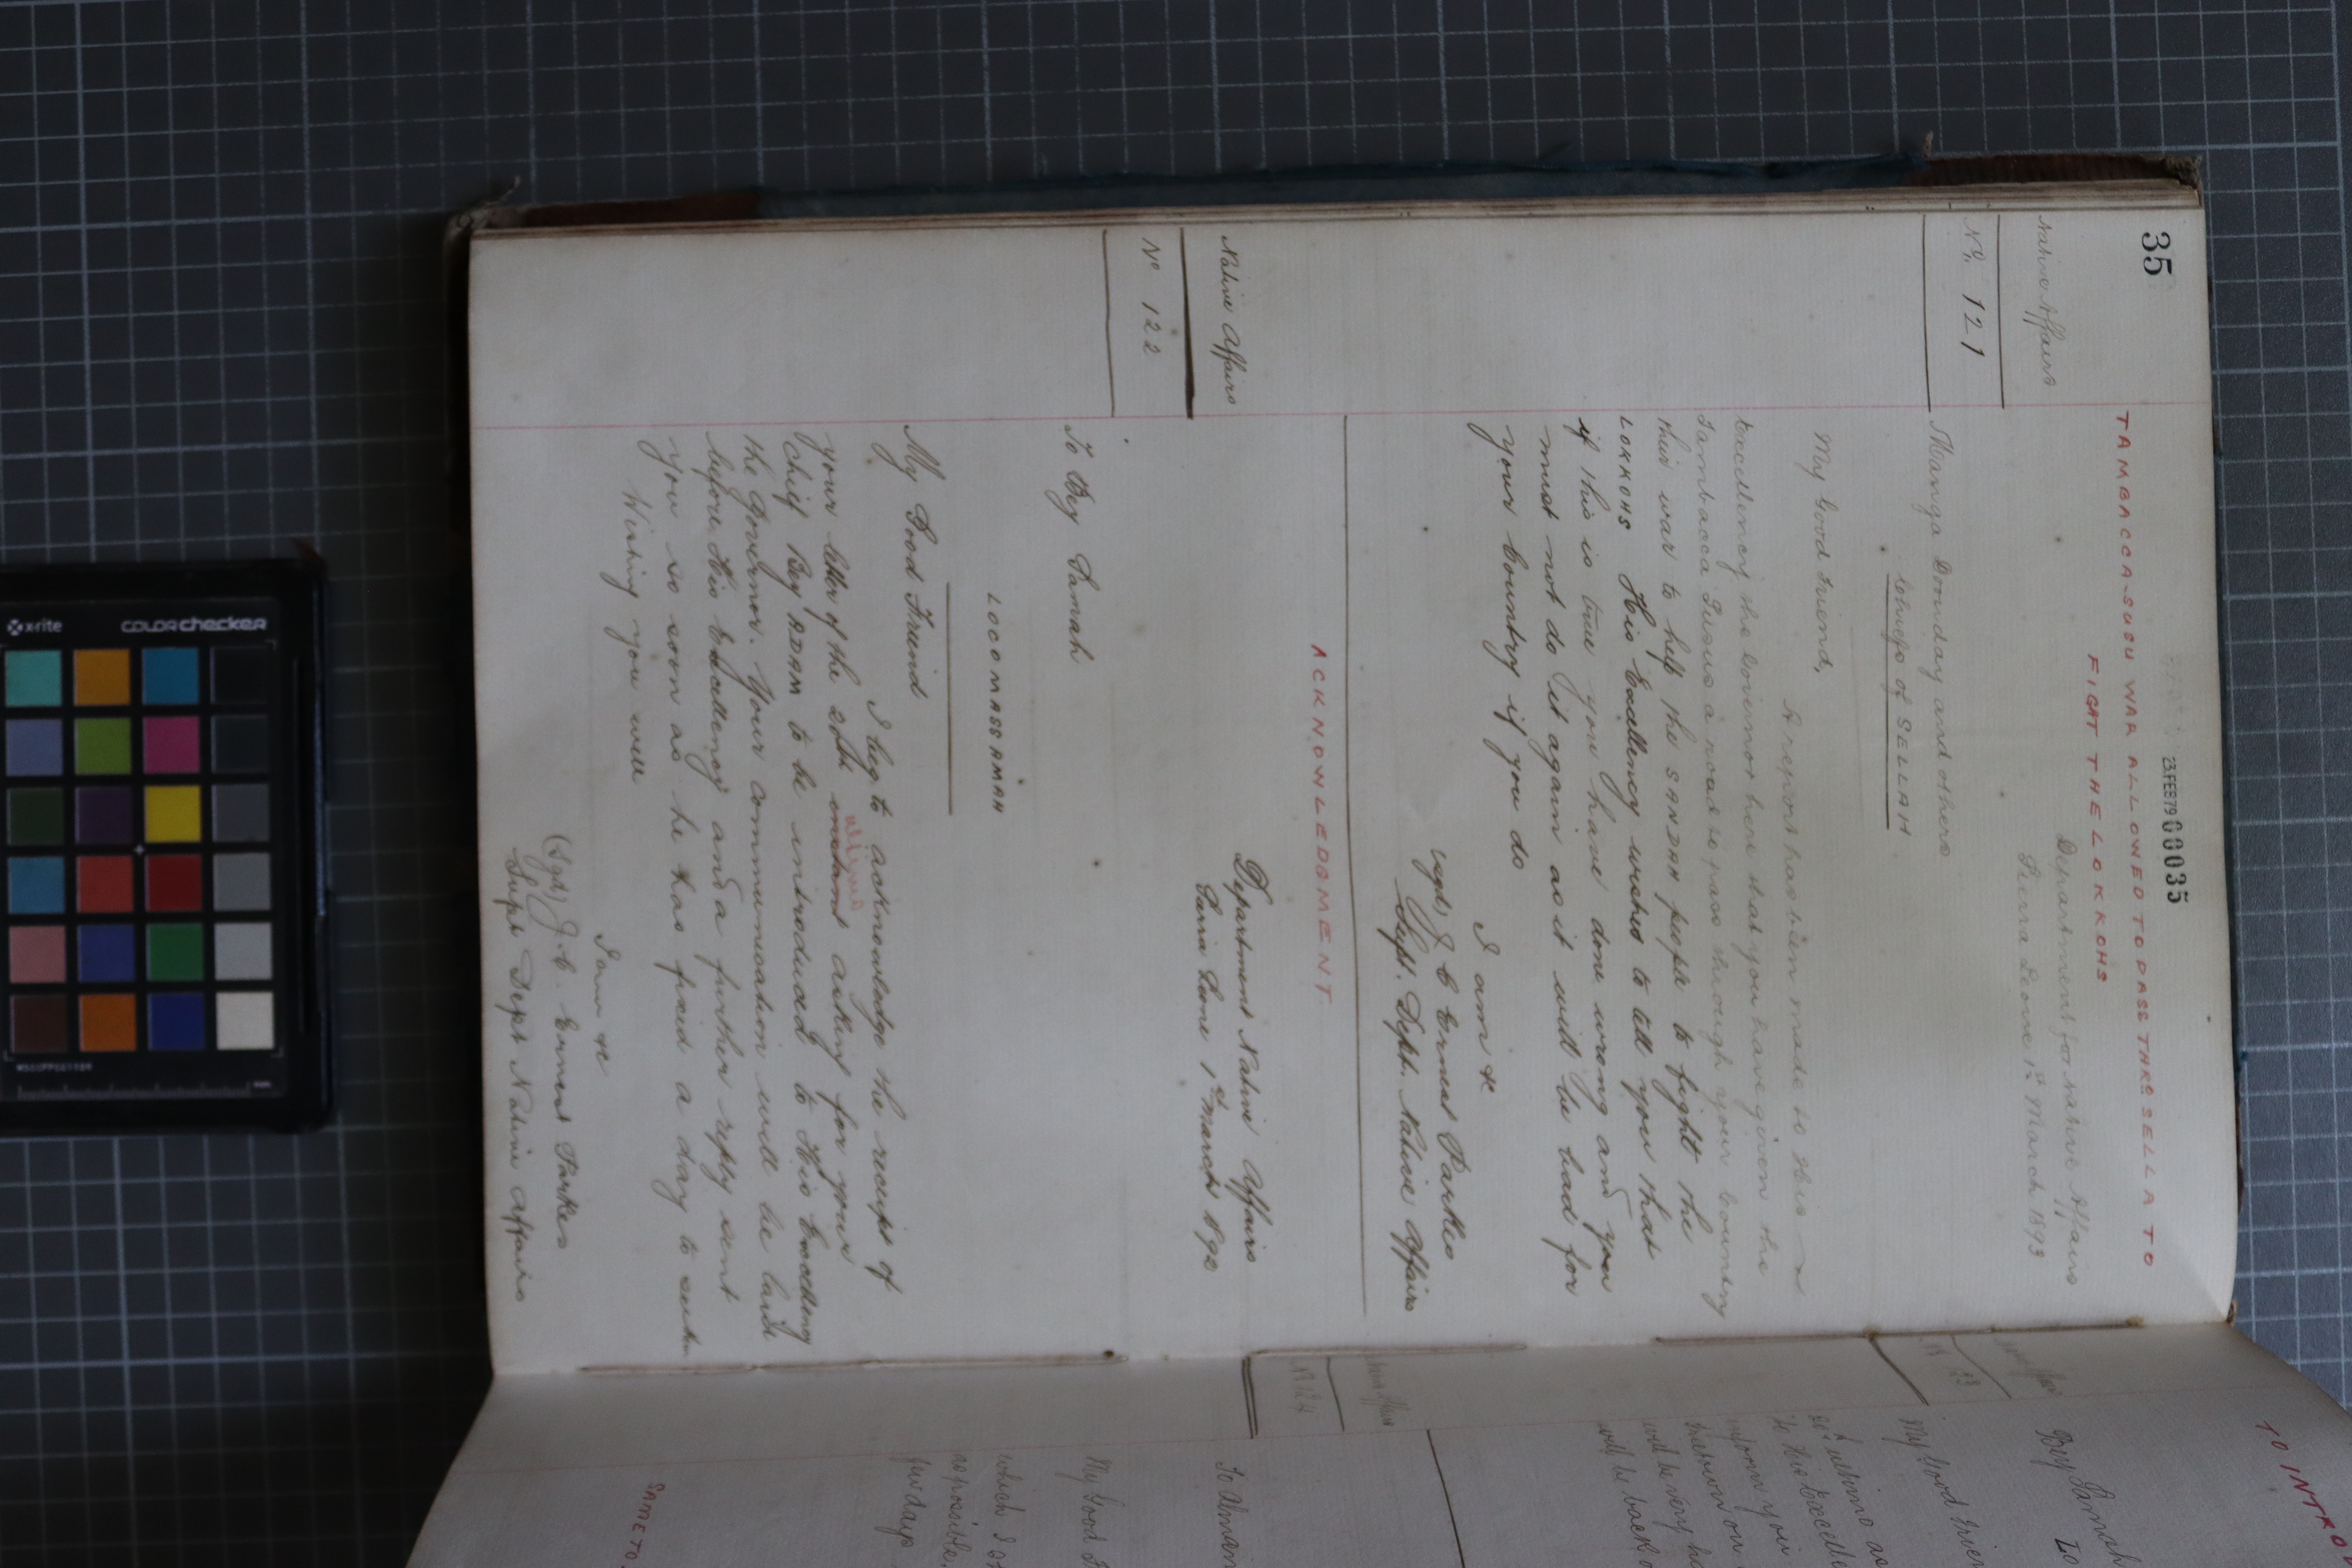 35
23 FEB 79 00035
TAMBACCA-SUSU WAR ALLOWED TO PASS THRO SELLA TO
FIGHT THE LOKKOHS
Native Affairs
Department for Native Affairs
Sierra Leone 1st March 1892
No. 121
Manga Douday and others
Chiefs of SELLAH
My Good Friend,
A report has been made to His
Excellency the Governor here that you have given the
Tambacca Susus a road to pass through your country
this war to help the SANDAH people to fight the
LOKKOHS His Excellency wishes to tell you that
if this is true you have done wrong and you
must not do it again as it will be bad for
your country if you do
I am &c
(sgd) J C Ernest Parkes
Supt. Dept. Native Affairs
ACKNOWLEDGMENT.
Native Affairs
Department Native Affairs
Sierra Leone 1st March 1892
No 122
To Bey Samah
LOCOMASSAMAH
My Good Friend
I beg to acknowledge the receipt of
your letter of the 20th instant asking for your
ultimo
chief Bey ADAM to be introduced to His Excellency
the Governor. Your communication will be laid
before His Excellency and a further reply sent
you so soon as he has fixed a day to
Wishing you well
I am &c
(Sgd) J. C. Ernest Parkes
Supt Dept Native Affairs
TO INTRO
Bey Samah
Lo
My Good Frien
To Alman
My Good F
which I
as possible
few days
SAME TO